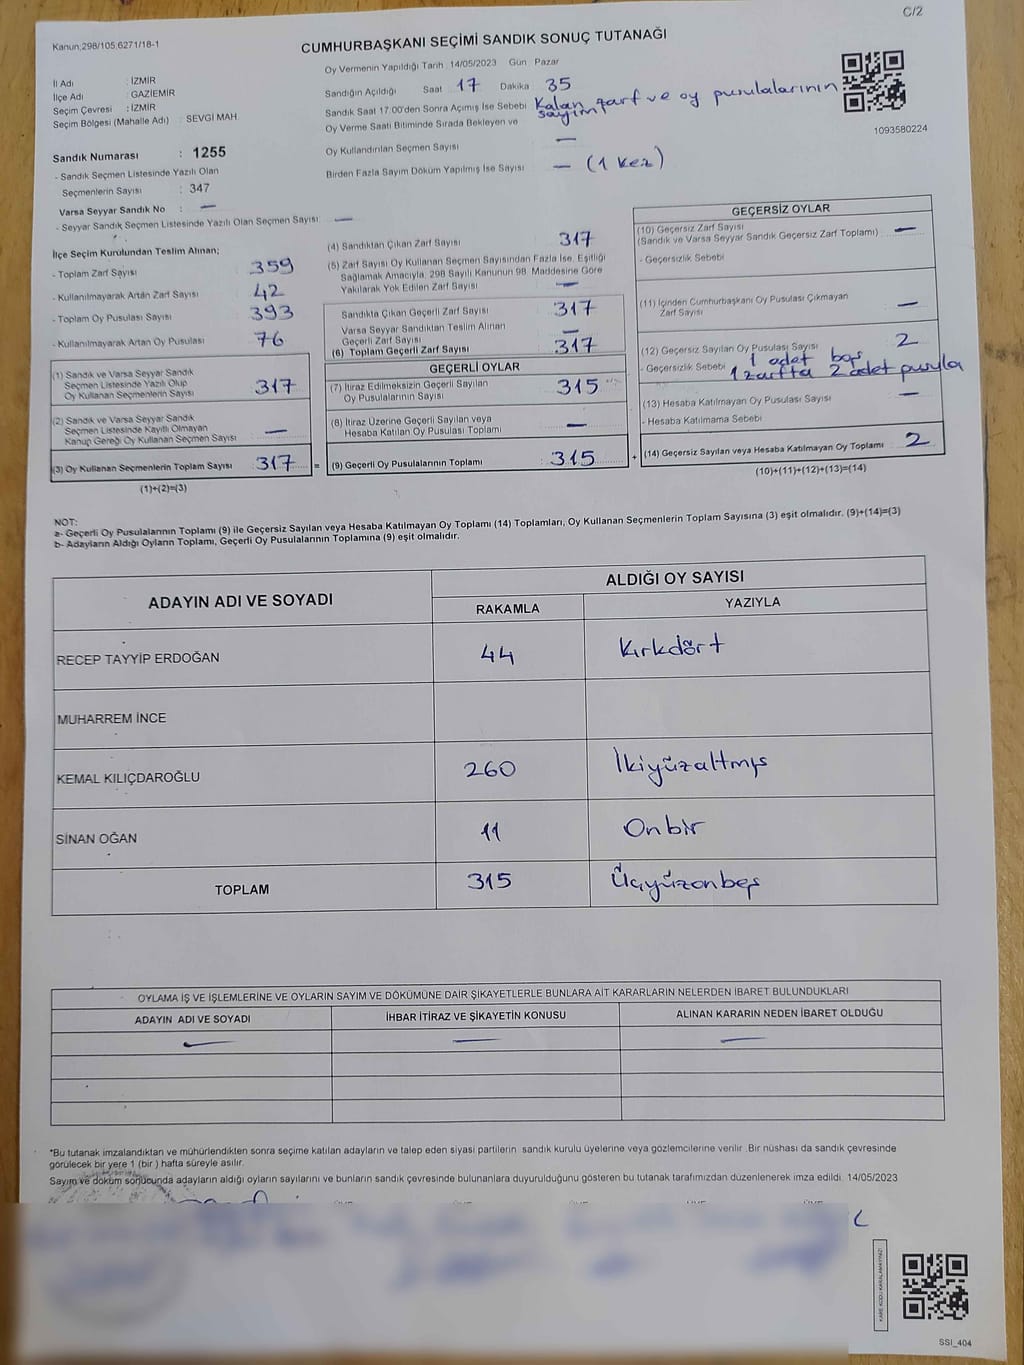 C/2
Kanun;298/105;6271/18-1
CUMHURBAŞKANI SEÇİMİ SANDIK SONUÇ TUTANAĞI
İl Adı : İZMİR
İlçe Adı : GAZİEMİR
Seçim Çevresi : İZMİR
Seçim Bölgesi (Mahalle Adı) : SEVGİ MAH.
Sandık Numarası : 1255
- Sandık Seçmen Listesinde Yazılı Olan
Seçmenlerin Sayısı : 347
Varsa Seyyar Sandık No : —
- Seyyar Sandık Seçmen Listesinde Yazılı Olan Seçmen Sayısı: —
Oy Vermenin Yapıldığı Tarih : 14/05/2023 Gün : Pazar
Sandığın Açıldığı Saat : 17 Dakika : 35
Sandık Saat 17.00'den Sonra Açılmış İse Sebebi : Kalan zarf ve oy pusulalarının
sayımı
Oy Verme Saati Bitiminde Sırada Bekleyen ve
Oy Kullandırılan Seçmen Sayısı : —
Birden Fazla Sayım Döküm Yapılmış İse Sayısı : — (1 kez)
1093580224
İlçe Seçim Kurulundan Teslim Alınan;
- Toplam Zarf Sayısı : 359
- Kullanılmayarak Artan Zarf Sayısı : 42
- Toplam Oy Pusulası Sayısı : 393
- Kullanılmayarak Artan Oy Pusulası : 76
(1) Sandık ve Varsa Seyyar Sandık
Seçmen Listesinde Yazılı Olup
Oy Kullanan Seçmenlerin Sayısı : 317
(2) Sandık ve Varsa Seyyar Sandık
Seçmen Listesinde Kayıtlı Olmayan
Kanun Gereği Oy Kullanan Seçmen Sayısı : —
(3) Oy Kullanan Seçmenlerin Toplam Sayısı : 317 =
(1)+(2)=(3)
(4) Sandıktan Çıkan Zarf Sayısı : 317
(5) Zarf Sayısı Oy Kullanan Seçmen Sayısından Fazla İse, Eşitliği
Sağlamak Amacıyla, 298 Sayılı Kanunun 98. Maddesine Göre
Yakılarak Yok Edilen Zarf Sayısı : —
Sandıkta Çıkan Geçerli Zarf Sayısı : 317
Varsa Seyyar Sandıktan Teslim Alınan
Geçerli Zarf Sayısı : —
(6) Toplam Geçerli Zarf Sayısı : 317
GEÇERLİ OYLAR
(7) İtiraz Edilmeksizin Geçerli Sayılan
Oy Pusulalarının Sayısı : 315
(8) İtiraz Üzerine Geçerli Sayılan veya
Hesaba Katılan Oy Pusulası Toplamı : —
(9) Geçerli Oy Pusulalarının Toplamı : 315 +
GEÇERSİZ OYLAR
(10) Geçersiz Zarf Sayısı
(Sandık ve Varsa Seyyar Sandık Geçersiz Zarf Toplamı) : —
- Geçersizlik Sebebi
(11) İçinden Cumhurbaşkanı Oy Pusulası Çıkmayan
Zarf Sayısı : —
(12) Geçersiz Sayılan Oy Pusulası Sayısı : 2
- Geçersizlik Sebebi 1 adet boş
1 zarfta 2 adet pusula
(13) Hesaba Katılmayan Oy Pusulası Sayısı : —
- Hesaba Katılmama Sebebi
(14) Geçersiz Sayılan veya Hesaba Katılmayan Oy Toplamı : 2
(10)+(11)+(12)+(13)=(14)
NOT:
a- Geçerli Oy Pusulalarının Toplamı (9) ile Geçersiz Sayılan veya Hesaba Katılmayan Oy Toplamı (14) Toplamları, Oy Kullanan Seçmenlerin Toplam Sayısına (3) eşit olmalıdır. (9)+(14)=(3)
b- Adayların Aldığı Oyların Toplamı, Geçerli Oy Pusulalarının Toplamına (9) eşit olmalıdır.
ADAYIN ADI VE SOYADI ALDIĞI OY SAYISI
RAKAMLA YAZIYLA
RECEP TAYYİP ERDOĞAN 44 Kırkdört
MUHARREM İNCE
KEMAL KILIÇDAROĞLU 260 İkiyüzaltmış
SİNAN OĞAN 11 Onbir
TOPLAM 315 Üçyüzonbeş
OYLAMA İŞ VE İŞLEMLERİNE VE OYLARIN SAYIM VE DÖKÜMÜNE DAİR ŞİKAYETLERLE BUNLARA AİT KARARLARIN NELERDEN İBARET BULUNDUKLARI
ADAYIN ADI VE SOYADI İHBAR İTİRAZ VE ŞİKAYETİN KONUSU ALINAN KARARIN NEDEN İBARET OLDUĞU
— — —
*Bu tutanak imzalandıktan ve mühürlendikten sonra seçime katılan adayların ve talep eden siyasi partilerin sandık kurulu üyelerine veya gözlemcilerine verilir. Bir nüshası da sandık çevresinde
görülecek bir yere 1 (bir ) hafta süreyle asılır.
Sayım ve döküm sonucunda adayların aldığı oyların sayılarını ve bunların sandık çevresinde bulunanlara duyurulduğunu gösteren bu tutanak tarafımızdan düzenlenerek imza edildi. 14/05/2023
KARE KODU KARALAMAYINIZ!
SSI_404